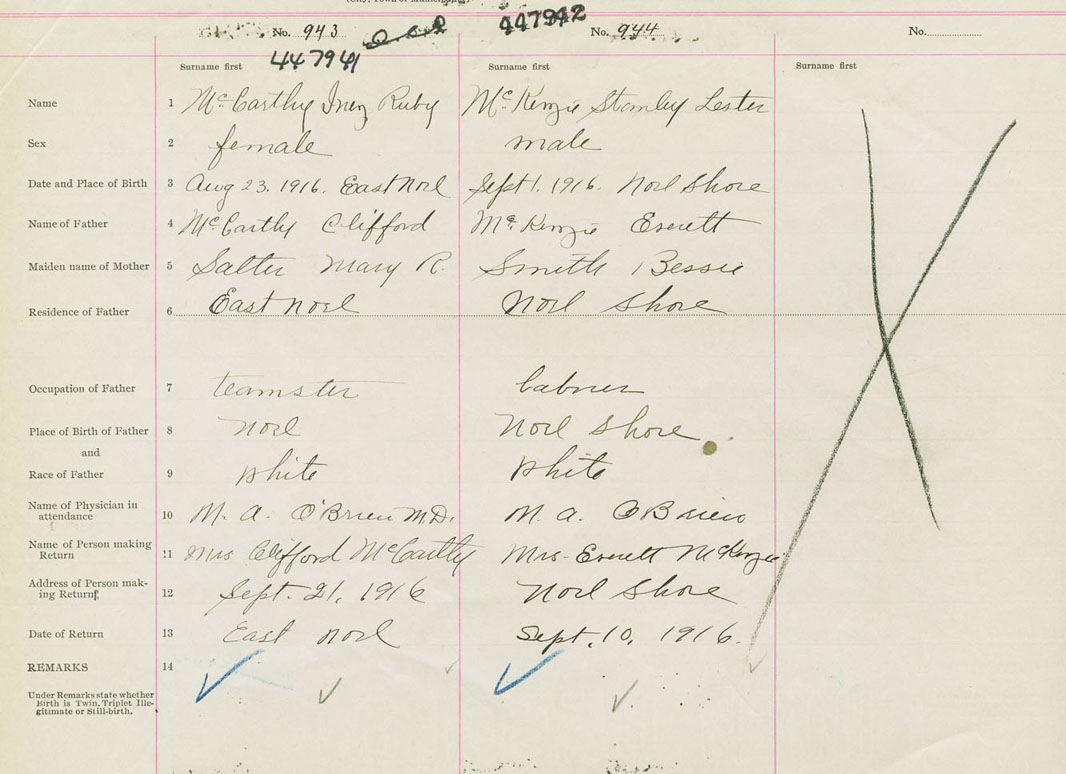 No. 943
447941
447942
No. 944
No.
Surname first
Surname first
Surname first
Name 1 McCarthy Inez Ruby McKenzie Stanley Lester
Sex 2 female male
Date and Place of Birth 3 Aug 23, 1916. East Noel Sept 1. 1916. Noel Shore
Name of Father 4 McCarthy Clifford McKenzie Everett
Maiden name of Mother 5 Salter Mary R. Smith Bessie
Residence of Father 6 East Noel Noel Shore
Occupation of Father 7 teamster labourer
Place of Birth of Father 8 Noel Noel Shore
and
Race of Father 9 white white
Name of Physician in
attendance 10 M. A. O'Brien M.D. M. A. O'Brien
Name of Person making
Return 11 Mrs Clifford McCarthy Mrs. Everett McKenzie
Address of Person mak-
ing Return 12 Sept. 21, 1916 Noel Shore
Date of Return 13 East Noel Sept. 10, 1916.
REMARKS 14
Under Remarks state whether
Birth is Twin, Triplet Ille-
gitimate or Still-birth.